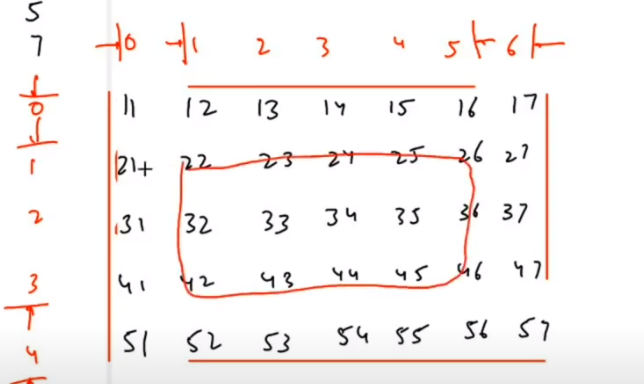 5
7
0 1 2 3 4 5 6
0 11 12 13 14 15 16 17
1 21+ 22 23 24 25 26 27
2 31 32 33 34 35 36 37
3 41 42 43 44 45 46 47
4 51 52 53 54 55 56 57